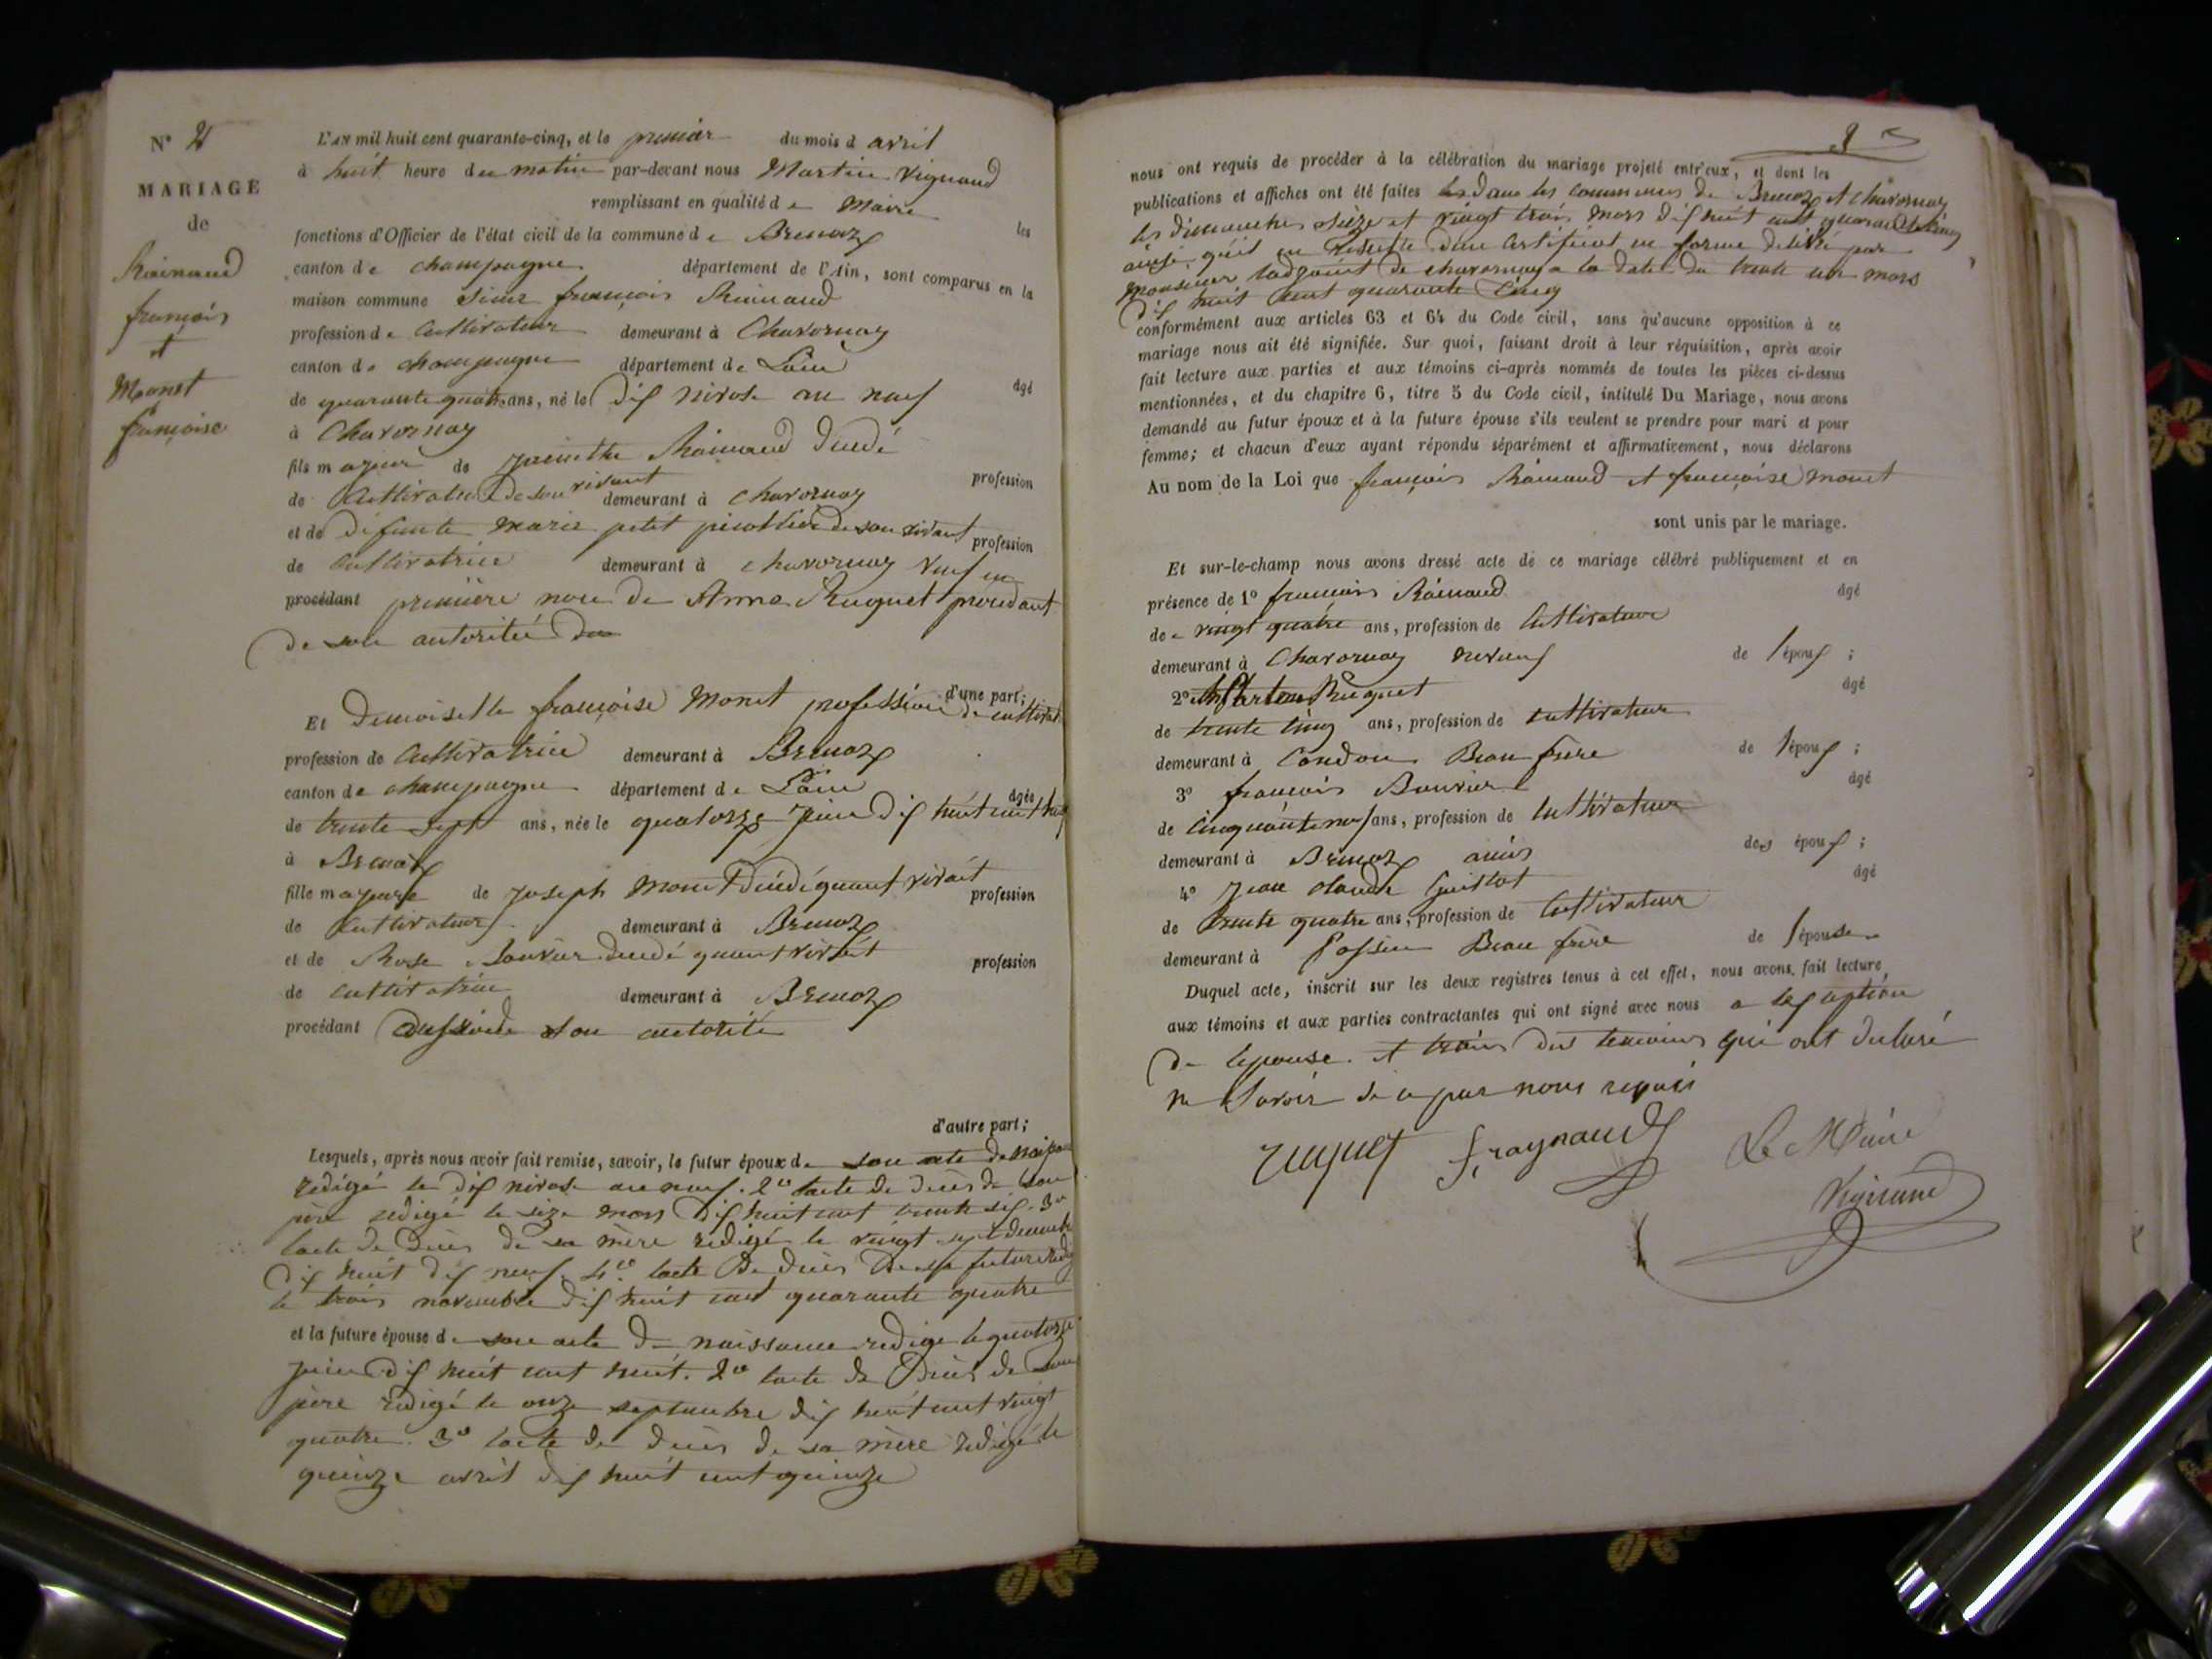 N° 2
MARIAGE
de
Rainaud
françois
et
Monet
françoise
L'AN mil huit cent quarante-cinq, et le premier du mois d avril
à huit heure du matin par-devant nous Martin Vignaud
remplissant en qualité de Maire les
fonctions d'Officier de l'état civil de la commune de Brenaz
canton de champagne département de l'Ain, sont comparus en la
maison commune sieur françois Rainaud
profession de Cultivateur demeurant à Chavornay
canton de champagne département de Lain
âgé
de quarante quatre ans, né le dix nivose an neuf
à Chavornay
fils majeur de Rainaud
profession
de Cultivateur de son vivant demeurant à chavornay
et de défunte marie petit de son vivant profession
de Cultivatrice demeurant à chavornay veuf en
procédant première noce de Ruguet
de son autorité
d'une part;
Et Demoiselle françoise Monet profession de
profession de Cultivatrice demeurant à Brenaz
canton de champagne département de Lain
âgée
de trente sept ans, née le quatorze juin dix huit cent huit
à Brenaz
fille majeure de joseph Monet quant vivait
profession
de Cultivateur demeurant à Brenaz
et de Rose Bouvier quant vivait profession
de cultivatrice demeurant à Brenaz
procédant son autorité
d'autre part;
Lesquels, après nous avoir fait remise, savoir, le futur époux de son acte de
redigé le dix nivose an neuf. 2° lacte de décès de son
père redigé le seize mars dix huit cent trente six. 3°
lacte de décès de sa mère redigé le vingt sept
dix huit dix neuf. 4° lacte de décès de sa future
le trois novembre dix huit cent quarante quatre
et la future épouse de son acte de naissance redige le quatorze
juin dix huit cent huit. 2° lacte de Décès de son
père redigé le onze septembre dix huit cent vingt
quatre. 3° lacte de décès de sa mère redigé le
quinze avril dix huit cent quinze
nous ont requis de procéder à la célébration du mariage projeté entr'eux, et dont les
publications et affiches ont été faites dans les communes de Brenaz et chavornay
les dimanches seize et vingt trois mars dix huit cent quarante cinq
ainsi qu'il en résulte d'un certificat en forme delivré par
monsieur ladjoint de chavornay a la date du trente un mars
dix huit cent quarante cinq
conformément aux articles 63 et 64 du Code civil, sans qu'aucune opposition à ce
mariage nous ait été signifiée. Sur quoi, faisant droit à leur réquisition, après avoir
fait lecture aux parties et aux témoins ci-après nommés de toutes les pièces ci-dessus
mentionnées, et du chapitre 6, titre 5 du Code civil, intitulé Du Mariage, nous avons
demandé au futur époux et à la future épouse s'ils veulent se prendre pour mari et pour
femme; et chacun d'eux ayant répondu séparément et affirmativement, nous déclarons
Au nom de la Loi que françois Rainaud et françoise monet
sont unis par le mariage.
Et sur-le-champ nous avons dressé acte de ce mariage célébré publiquement et en
présence de 1° françois Rainaud âgé
de vingt quatre ans, profession de Cultivateur
demeurant à Chavornay neveux de l époux ;
2° Ruguet âgé
de trente cinq ans, profession de cultivateur
demeurant à Condon Beau frere de l époux ;
3° françois Bouvier âgé
de cinquante neuf ans, profession de cultivateur
demeurant à Brenaz amis des époux ;
4° jean claude Guillot âgé
de trente quatre ans, profession de Cultivateur
demeurant à Beau frère de l épouse
Duquel acte, inscrit sur les deux registres tenus à cet effet, nous avons fait lecture
aux témoins et aux parties contractantes qui ont signé avec nous a lexception
de lepouse et trois des temoins qui ont declaré
ne savoir de ce par nous requis
ruguet fraynaud Le Maire
Vignaud